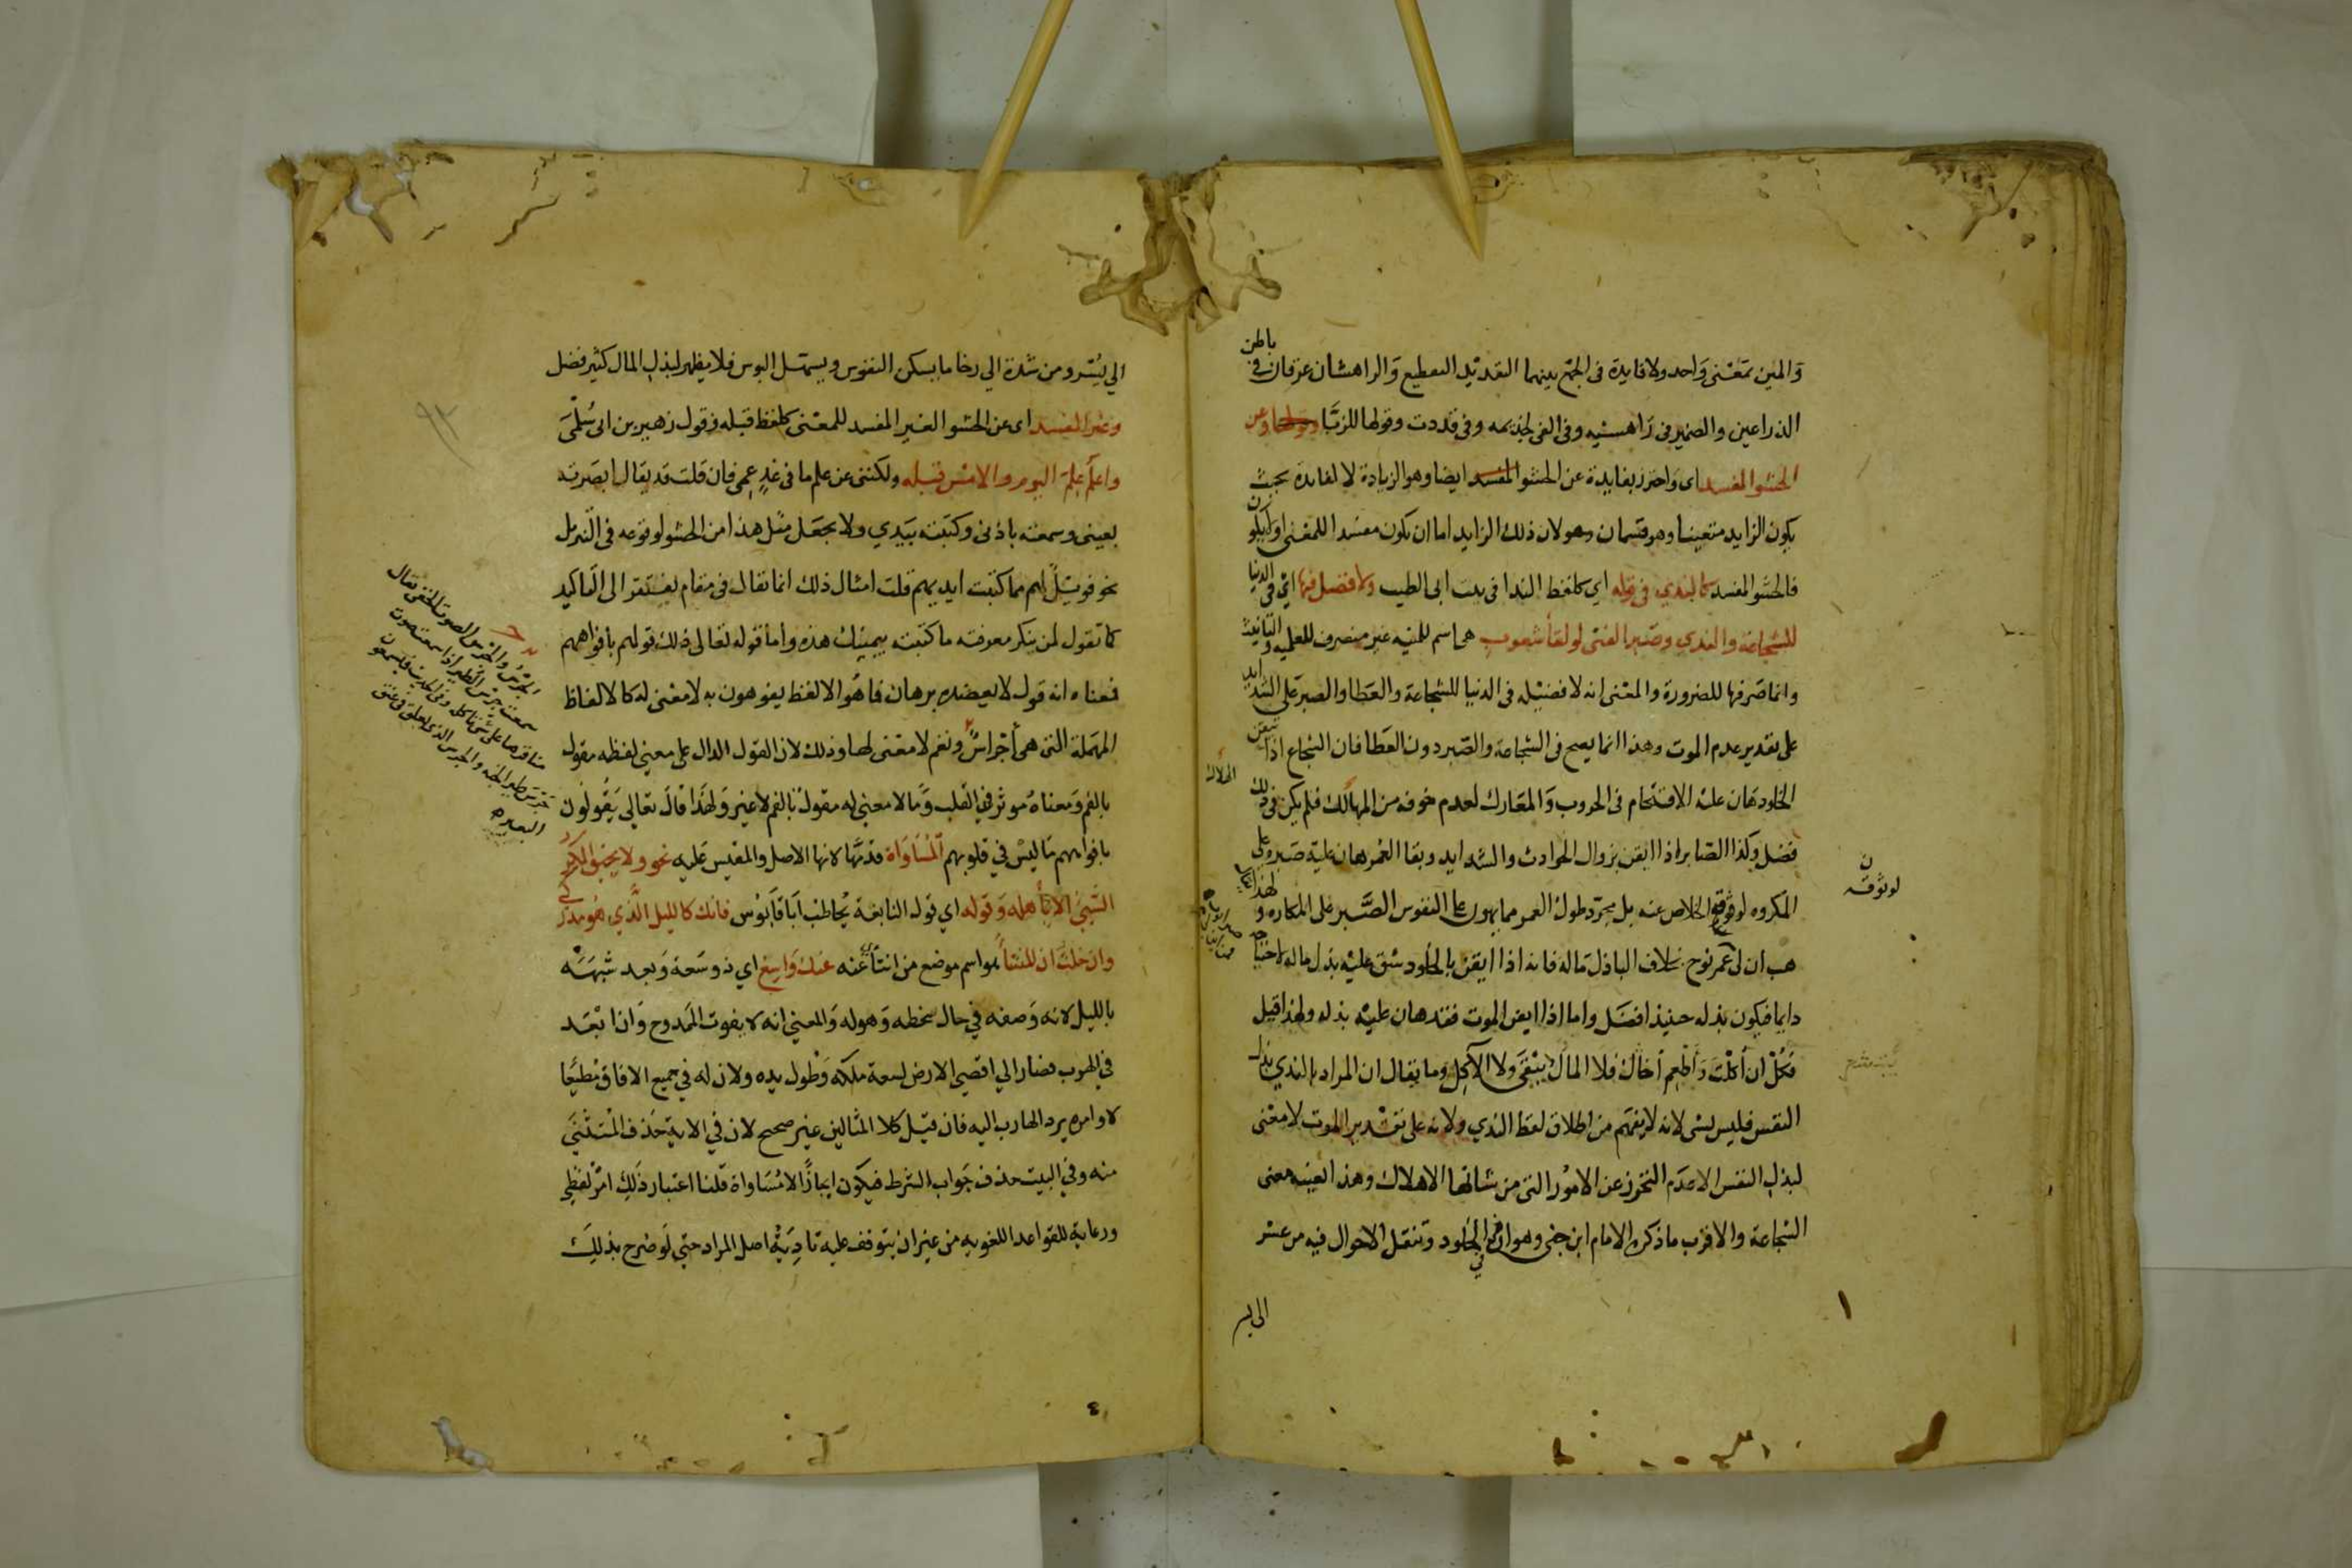 والمين بمعنى واحد ولا فايدة فى الجمع بينهما التقديد التقطيع والراهشان عرقان فى باطن
الذراعين والضمير فى راهشيه وفى الفى لجذيمه وفى قددت وقولها للزبا وعن
الحشو المفسد اى واحترز بفايدة عن الحشو المفسد ايضا وهو الزيادة لا لفايدة بحيث
يكون الزايد متعينا وهو قسمان وهو لان ذلك الزايد اما ان يكون مفسدا للمعنى اولا يكون
فالحشو المفسد كالندى فى قوله اي كلفظ الندا فى بيت ابى الطيب ولا فضل فيها اى فى الدنيا
للشجاعة والندى وصبر الفتى لولا لقا شعوب هى اسم للمنيه غير منصرف للعلميه والتانيث
وانما صرفها للضرورة والمعنى انه لا فضيلة فى الدنيا للشجاعة والعطا والصبر على الشدايد
على تقدير عدم الموت وهذا انما يصح فى الشجاعة والصبر دون العطا فان الشجاع اذا تيقن
الخلود هان عليه الاقتحام فى الحروب والمعارك لعدم خوفه من الهلاك فلم يكن فى ذلك
فضل وكذا الصابر اذا ايقن بزوال الحوادث والشدايد وبقا العمر هان عليه صبره على
المكروه لوثوقه الخلاص عنه بل مجرد طول العمر مما يهون على النفوس الصبر على المكاره ولهذا
هب ان لى عمر نوح بخلاف الباذل ماله فانه اذا ايقن بالخلود شق عليه بذل ماله لاحتياجه
دايما فيكون بذله حينيذ افضل واما اذا ايقن الموت فقد هان عليه بذله ولهذا قيل
فكل ان أكلت وأطعم أخاك فلا المال يبقى ولا الآكل وما يقال ان المراد بالندي بذل
النفس فليس بشى لانه لا يفهم من اطلاق لفظ الندي ولانه على تقدير الموت لا معنى
لبذل النفس الا عدم التحرز عن الامور التى من شانها الاهلاك وهذا بعينه معنى
الشجاعة والاقرب ما ذكره الامام ابن جنى وهو ان فى الخلود وتنقل الاحوال فيه من عسر
الى يسر
لوثوقه
الهلاك
الي يُسر ومن شدة الي رخا ما يسكن النفوس ويسهل البوس فلا يظهر لبذل المال كثير فضل
وغير المفسد اى عن الحشو الغير المفسد للمعنى كلفظ قبله فى قول زهير بن ابى سُلمى
واعلم علم اليوم والامس قبله ولكننى عن علم ما فى غدٍ عمى فان قلت قد يقال ابصرته
بعينى وسمعته باذنى وكتبته بيدي ولا يجعل مثل هذا من الحشو لوقوعه فى التنزيل
نحو فويل لهم مما كتبت ايديهم قلت امثال ذلك انما تقال فى مقام يفتقر الى التاكيد
كما تقول لمن ينكر معرفته ما كتبته بيمينك هذه وأما قوله تعالى ذلك قولهم بأفواههم
فمعناه انه قول لا يعضده برهان فما هو الا لفظ يفوهون به لا معنى له كالالفاظ
المهملة التى هى أجراسٌ ونغم لا معنى لها وذلك لان القول الدال على معنى لفظه مقول
بالفم ومعناهُ موثر في القلب وما لا معنى له مقول بالفم لا غير ولهذا قال تعالى يقولون
بافواههم ما ليس في قلوبهم المساواة قدمها لانها الاصل والمقيس عليه نحو ولا يحيق المكر
السيئ الا بأهله وقوله اي قول النابغة يخاطب أبا قابوس فانك كالليل الذي هو مدركي
وان خلت ان المنتأى هو اسم موضع من انتأى عنه عنك واسع اي ذو سعة وبعد شبهه
بالليل لانه وصفه في حال سخطه وهوله والمعنى انه لا يفوت الممدوح وان ابعد
في الهرب فصار الي اقصي الارض لسعة ملكه وطول يده ولان له في جميع الافاق مُطيعا
لاوامره يرد الهارب اليه فان قيل كلا المثالين غير صحيح لان في الاية حذف المستثنى
منه وفي البيت حذف جواب الشرط فيكون ايجازًا لا مُساواة قلنا اعتبار ذلك امر لفظي
ورعاية للقواعد اللغويه من غير ان يتوقف عليه تادية اصل المراد حتى لو صُرح بذلك
الجرس والجرس الصوت الخفى يقال
سمعت جرس الطير اذا سمعت صوت
مناقرها على شى تاكله وفى الحديث فيسمعون
جرس طير الجنه والجرس الذى يعلق فى عنق
البعير